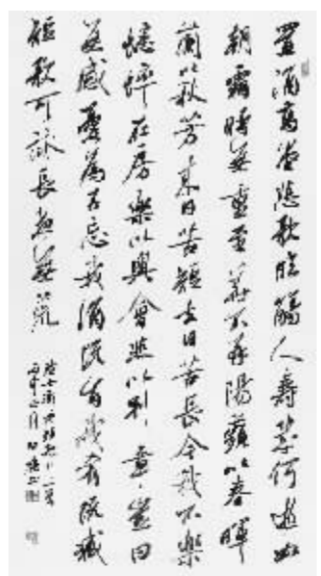 置酒高堂悲歌臨觴人壽幾何逝如
朝霜時無重至華不再陽蘋以春暉
蘭以秋芳來日苦短去日苦長今我不樂
蟋蟀在房樂以興會悲以別章豈曰
無感憂為子忘我酒既旨我肴既臧
短歌可詠長夜無荒